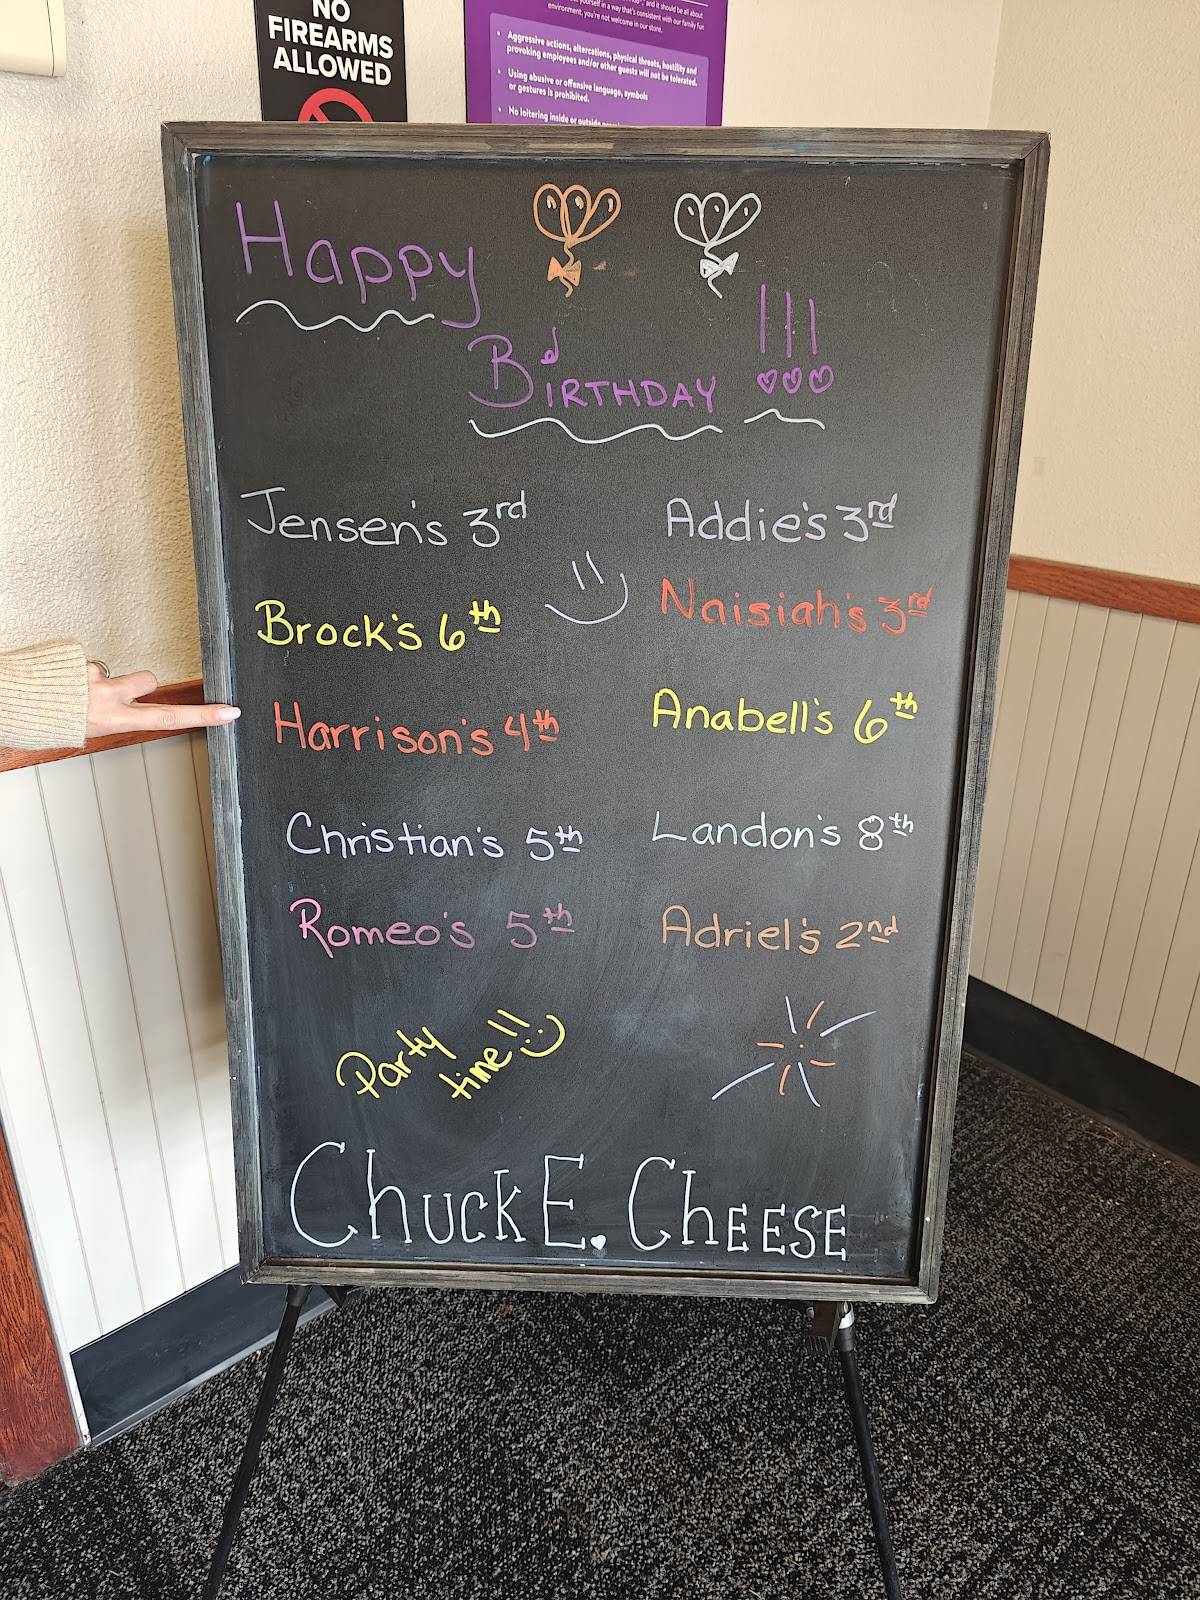 NO
FIREARMS
ALLOWED
yourself in a way that's consistent with our family fun
environment, you're not welcome in our store.
• Aggressive actions, altercations, physical threats, hostility and
provoking employees and/or other guests will not be tolerated.
• Using abusive or offensive language, symbols
or gestures is prohibited.
• No loitering inside or outside
Happy
BIRTHDAY !!!
Jensen's 3rd
Brock's 6th
Harrison's 4th
Christian's 5th
Romeo's 5th
Addie's 3rd
Naisiah's 3rd
Anabell's 6th
Landon's 8th
Adriel's 2nd
Party
time!!
CHUCK E. CHEESE